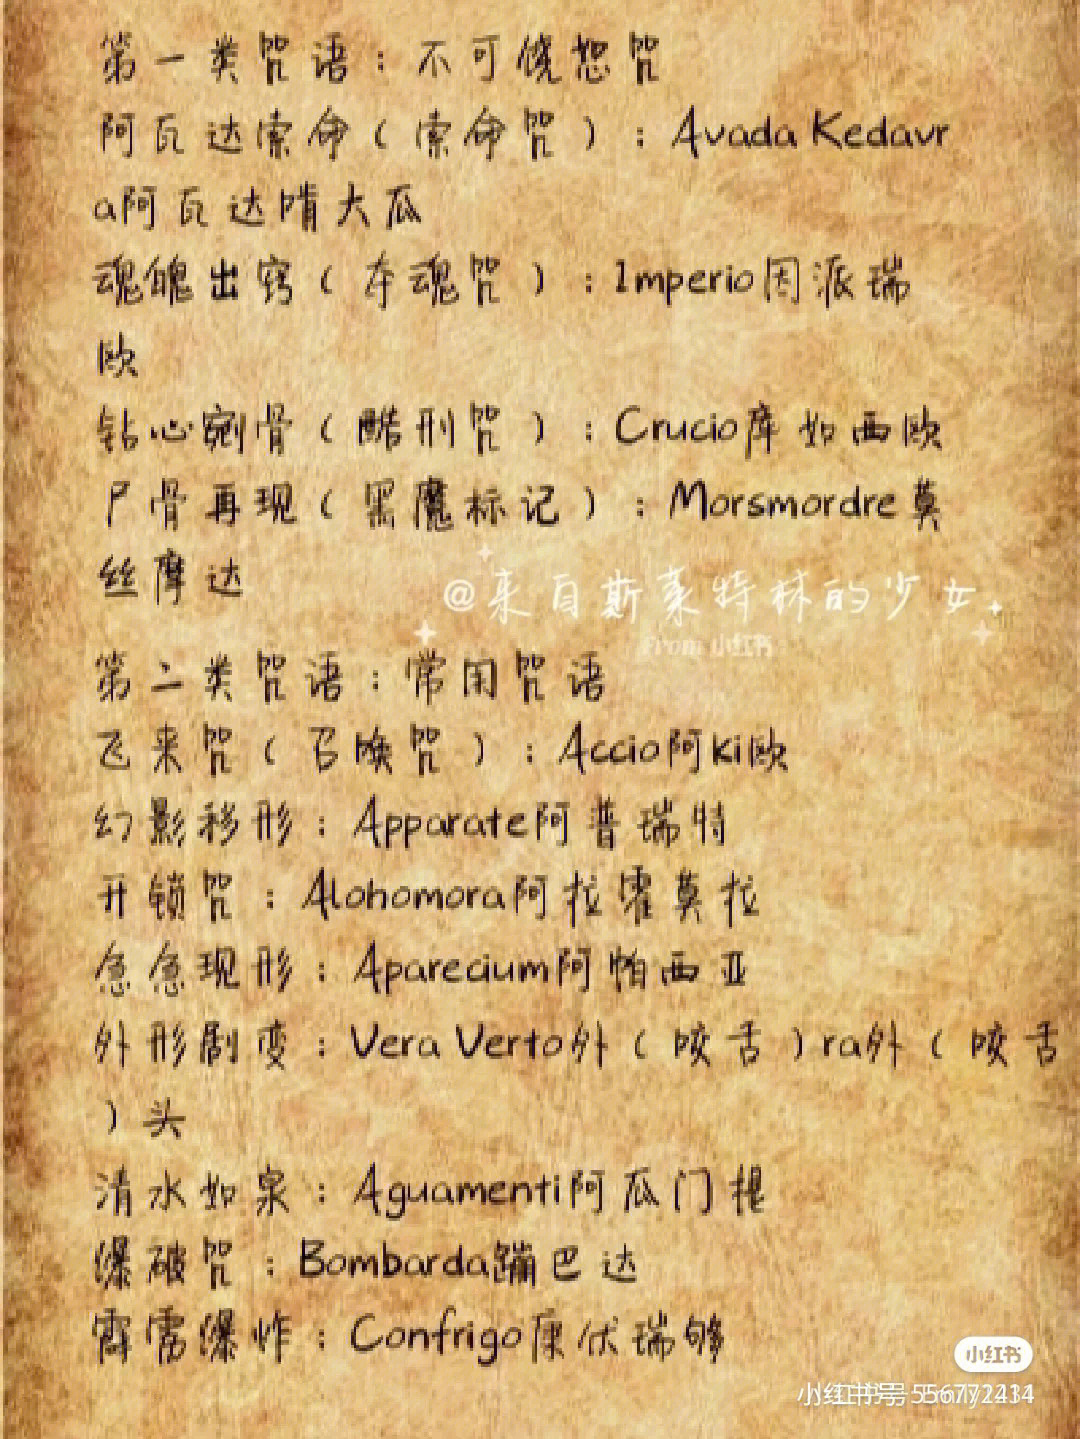 第一类咒语：不可饶恕咒
阿瓦达索命（索命咒）：Avada Kedavr
a阿瓦达啃大瓜
魂魄出窍（夺魂咒）：Imperio因派瑞
欧
钻心剜骨（酷刑咒）：Crucio库如西欧
尸骨再现（黑魔标记）：Morsmordre莫
丝摩达
@来自斯莱特林的少女
From 小红书
第二类咒语：常用咒语
飞来咒（召唤咒）：Accio阿ki欧
幻影移形：Apparate阿普瑞特
开锁咒：Alohomora阿拉霍莫拉
急急现形：Aparecium阿帕西亚
外形剧变：Vera Verto外（咬舌）ra外（咬舌
）头
清水如泉：Aguamenti阿瓜门提
爆破咒：Bombarda蹦巴达
霹雳爆炸：Confrigo康伏瑞够
小红书
小红书号